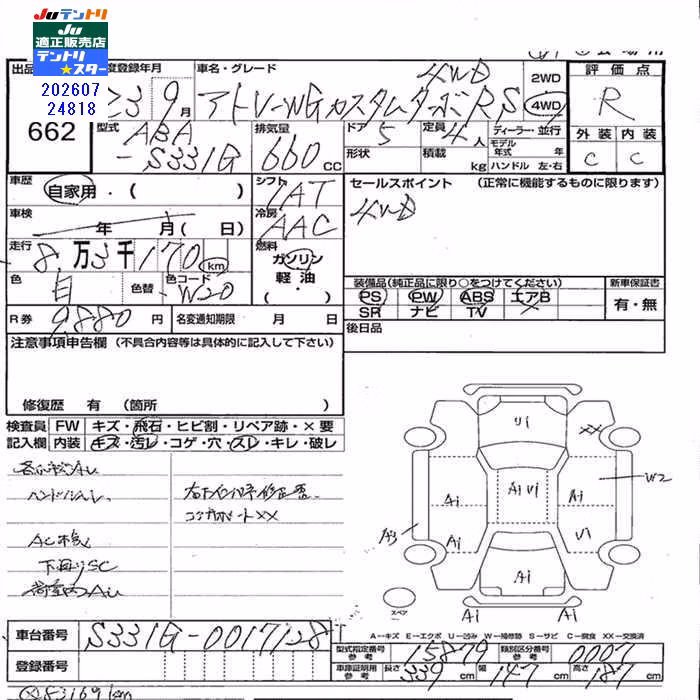 Juテントリ
Ju
適正販売店
テントリ
★スター
202607
24818
出品
度登録年月
車名・グレード
23 9月
アトレーWGカスタムターボRS 4WD
2WD
4WD
評価点
R
662
型式
ABA
-S331G
排気量
660 cc
ドア 5
形状
定員 4人
積載 kg
ディーラー・並行
モデル年式 年
ハンドル 左・右
外装 内装
C C
車歴
自家用・( )
シフト
IAT
セールスポイント (正常に機能するものに限ります)
4WD
車検
年 月( 日)
冷房
AAC
走行
8万3千170 km
燃料
ガソリン
軽油
・
色
白
色替
色コード
W20
装備品(純正品に限り○をつけてください)
新車保証書
PS PW ABS エアB
SR ナビ TV
有・無
R券
9,880 円
名変通知期限 月 日
後日品
注意事項申告欄 (不具合内容等は具体的に記入して下さい)
修復歴 有 (箇所 )
検査員
記入欄
FW キズ・飛石・ヒビ割・リペア跡・×要
内装 キズ・汚レ・コゲ・穴・スレ・キレ・破レ
ハンドルAL
下廻りSC
荷室内AU
コアサポートXX
Ui
XX
W2
Ai
AiUi
Ai
A3
Ai
Ui
Ai
Ai
Ai
スペア
A―キズ E―エクボ U―凹み W―補修跡 S―サビ C―腐食 XX―交換済
車台番号
S331G-0017128
登録番号
型式指定番号
参考
15879
類別区分番号
参考
0007
車庫証明用
参考
長さ 339 cm
幅 147 cm
高さ 187 cm
83169km